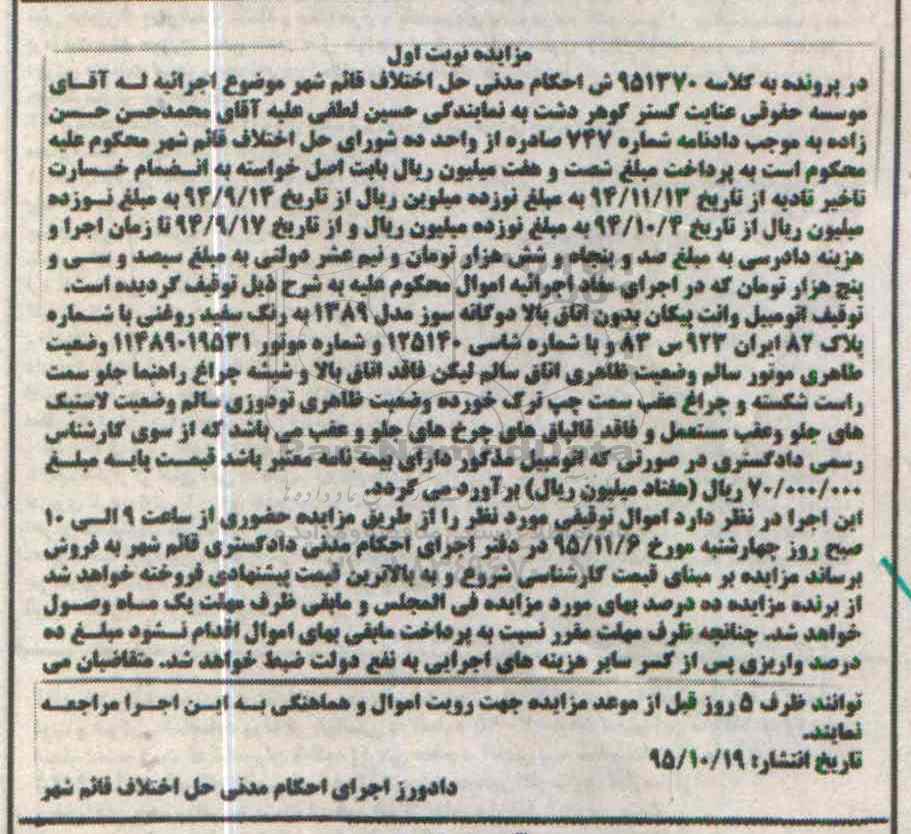 مزایده نوبت اول
در پرونده به کلاسه ۹۵۱۳۷۰ ش احکام مدنی حل اختلاف قائم شهر موضوع اجرائیه لـه آقـای
موسسه حقوقی عنایت گستر گوهر دشت به نمایندگی حسین لطفی علیه آقای محمدحسن حسن
زاده به موجب دادنامه شماره ۷۴۷ صادره از واحد ده شورای حل اختلاف قائم شهر محکوم علیه
محکوم است به پرداخت مبلغ شصت و هفت میلیون ریال بابت اصل خواسته به انـضمام خسـارت
تاخیر تادیه از تاریخ ۹۴/۱۱/۱۳ به مبلغ نوزده میلوین ریال از تاریخ ۹۴/۹/۱۴ به مبلغ نـوزده
میلیون ریال از تاریخ ۹۴/۱۰/۴ به مبلغ نوزده میلیون ریال و از تاریخ ۹۴/۹/۱۷ تا زمان اجرا و
هزینه دادرسی به مبلغ صد و پنجاه و شش هزار تومان و نیم عشر دولتی به مبلغ سیصد و سـی و
پنج هزار تومان که در اجرای مفاد اجرائیه اموال محکوم علیه به شرح ذیل توقیف گردیده است.
توقیف اتومبیل وانت پیکان بدون اتاق بالا دوگانه سوز مدل ۱۳۸۹ به رنگ سفید روغنی با شـماره
پلاک ۸۲ ایران ۹۲۳ س ۸۳ و با شماره شاسی ۱۲۵۱۴۰ و شماره موتور ۱۱۴۸۹۰۱۹۵۳۱ وضعیت
ظاهری موتور سالم وضعیت ظاهری اتاق سالم لیکن فاقد اتاق بالا و شیشه چراغ راهنما جلو سمت
راست شکسته و چراغ عقب سمت چپ ترک خورده وضعیت ظاهری تودوزی سالم وضعیت لاستیک
های جلو وعقب مستعمل و فاقد قالپاق های چرخ های جلو و عقب می باشد که از سوی کارشناس
رسمی دادگستری در صورتی که اتومبیل مذکور دارای بیمه نامه معتبر باشد قیمـت پایـه مبلـغ
۷۰/۰۰۰/۰۰۰ ریال (هفتاد میلیون ریال) برآورد می گردد.
این اجرا در نظر دارد اموال توقیفی مورد نظر را از طریق مزایده حضوری از ساعت ۹ الـی ۱۰
صبح روز چهارشنبه مورخ ۹۵/۱۱/۶ در دفتر اجرای احکام مدنی دادگستری قائم شهر به فروش
برساند مزایده بر مبنای قیمت کارشناسی شروع و به بالاترین قیمت پیشنهادی فروخته خواهد شد
از برنده مزایده ده درصد بهای مورد مزایده فی المجلس و مابقی ظرف مهلت یک مـاه وصـول
خواهد شد. چنانچه ظرف مهلت مقرر نسبت به پرداخت مابقی بهای اموال اقدام نـشود مبلـغ ده
درصد واریزی پس از کسر سایر هزینه های اجرایی به نفع دولت ضبط خواهد شد. متقاضیان می
توانند ظرف ۵ روز قبل از موعد مزایده جهت رویت اموال و هماهنگی بـه ایـن اجـرا مراجعـه
نمایند.
تاریخ انتشار: ۹۵/۱۰/۱۹
دادورز اجرای احکام مدنی حل اختلاف قائم شهر